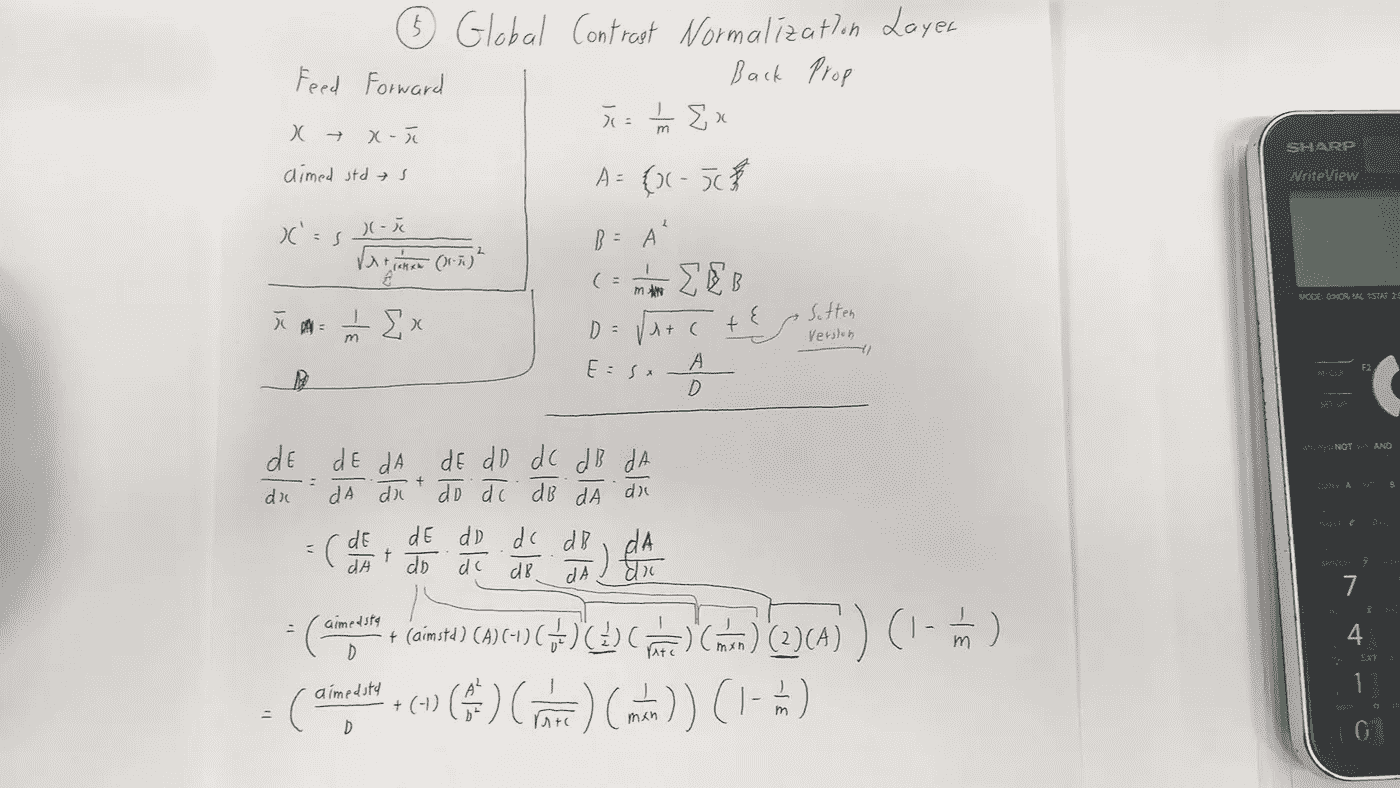 ⑤ Global Contrast Normalization Layer
Feed Forward
x → x - x̄
aimed std → s
x' = s (x - x̄) / √(λ + 1/ (x-x̄)²
x̄ = 1/m Σ x
Back Prop
x̄ = 1/m Σ x
A = (x - x̄)
B = A²
C = 1/m Σ B
D = √(λ + C) + ε → Soften
Version
E = s × A/D
dE/dx = dE/dA · dA/dx + dE/dD · dD/dC · dC/dB · dB/dA · dA/dx
= (dE/dA + dE/dD · dD/dC · dC/dB · dB/dA) dA/dx
= (aimedstd/D + (aimstd)(A)(-1)(1/D²)(1/2)(1/√(λ+C))(1/m×n)(2)(A)) (1 - 1/m)
= (aimedstd/D + (-1)(A²/D²)(1/√(λ+C))(1/m×n)) (1 - 1/m)
SHARP
WriteView
NOT AND
7
4
1
0